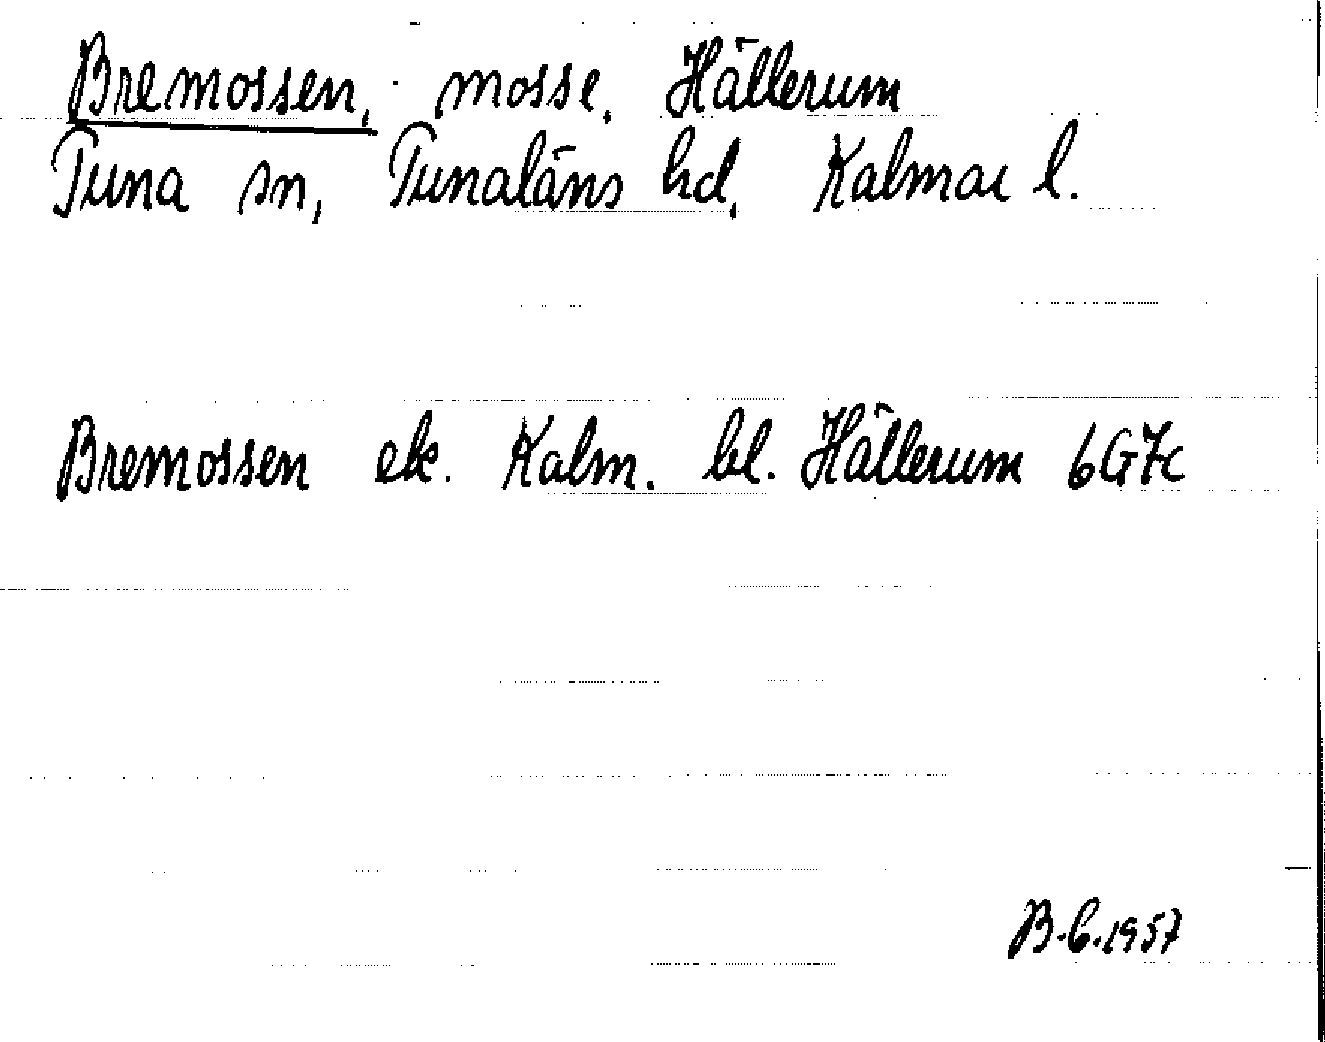 Bremossen, mosse, Hällerum
Tuna sn, Tunaläns hd, Kalmar l.
Bremossen ek. Kalm. bl. Hällerum 6G7c
B.C.1957